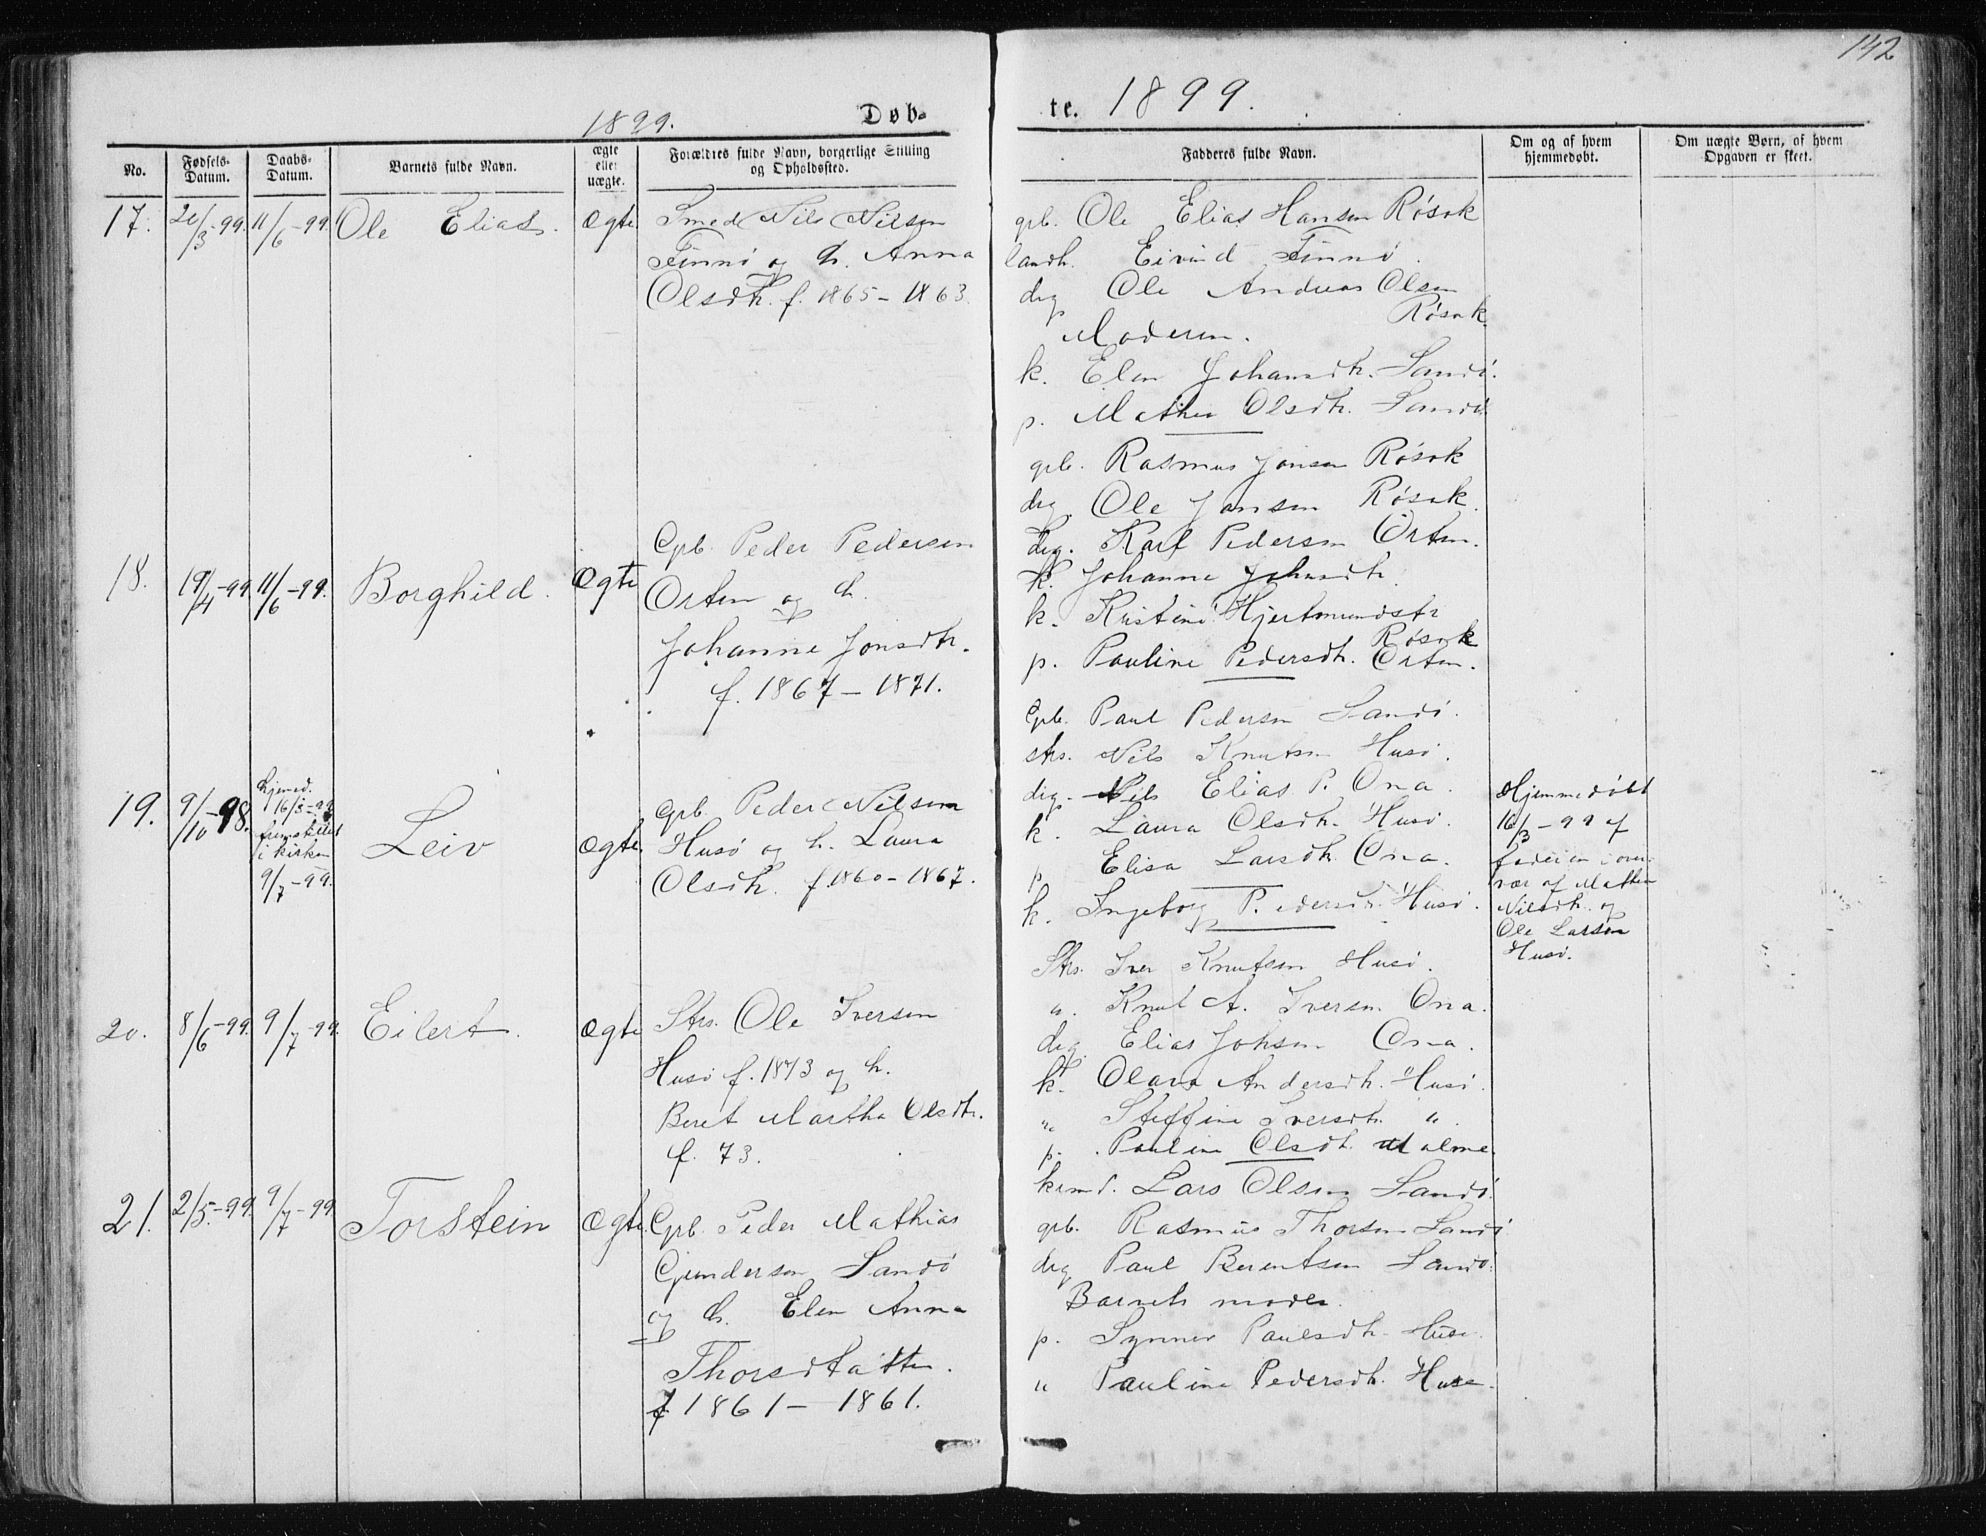 142
1899. Døb-
te. 1899.
No.
Fødsels-Datum.
Daabs-Datum.
Barnets fulde Navn.
ægte eller uægte.
Forældres fulde Navn, borgerlige Stilling og Opholdssted.
Fadderes fulde Navn.
Om og af hvem hjemmedøbt.
Om uægte Børn, af hvem Opgaven er skeet.
17. 20/3-99. 11/6-99. Ole Elias. Ægte
Smed Nils Nilsen
Finnø og h. Anna
Olsdtr. f. 1865-1863.
grb. Ole Elias Hansen Røsok
landh. Eivind Finnø.
drg Ole Andreas Olsen
Røsok.
Moderen.
k. Elen Johansdtr. Sandø.
p. Mathea Olsdtr. Sandø.
18. 19/4-99 11/6-99. Borghild. Ægte
Gpb. Peder Pedersen
Orten og h.
Johanne Jonsdtr.
f. 1867-1871.
grb. Rasmus Jonsen Røsok
drg. Ole Jansen Røsok.
drg. Karl Pedersen Orten.
k. Johanne Johnsdtr.
k. Kristine Hjertmundsdtr
Røsok
p. Pauline Pedersdtr. Orten.
19. 9/10-98. hjemd.
16/3-99
fremstillet
i kirken
9/7-99.
Leiv Ægte.
gpb. Peder Nilsen
Husø og h. Laura
Olsdtr. f. 1860-1867.
Gpb. Paul Pedersen Sandø.
strs. Nils Knutsen Husø.
drg. Nils Elias P. Ona.
k. Laura Olsdtr. Husø.
p Elisa Larsdtr. Ona.
k. Ingeborg Pedersdtr. Husø.
Hjemmedøbt
16/3-99 af
faderen i over-
vær af Mathea
Nilsdtr. og
Ole Larsen
Husø.
20. 8/6-99. 9/7-99. Eilert. Ægte
Strs. Ole Iversen
Husø f. 1873 og h.
Beret Martha Olsdtr.
f. 73.
Strs. Iver Knutsen Husø.
". Knut A. Iversen Ona.
drg. Elias Johsen Ona.
k. Olava Andersdtr. Husø.
" Steffine Iversdtr. "
p. Pauline Olsdtr. Malme.
21. 2/5.-99. 9/7-99 Torstein Ægte.
Gpb. Peder Mathias
Gunderson Sandø
og h. Elen Anna
Thorsdtatter.
f 1861-1861.
krmd. Lars Olsen Sandø.
grb. Rasmus Thorsen Sandø
drg Paul Berentsen Sandø.
Barnets moder.
p. Synnev Paulsdtr. Husø.
" Pauline Pedersdtr. Husø.